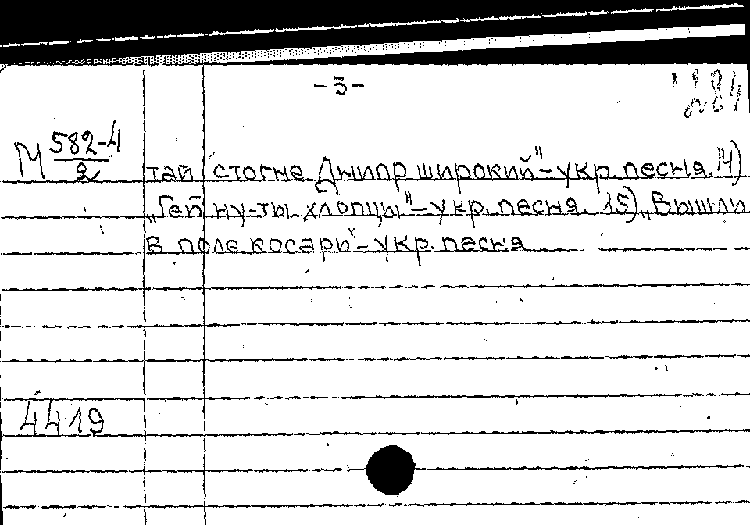 -3-
284
М 582-4/2
тай стогне Днипр широкий"-укр. песня. 14)
„Гей ну-ты хлопцы"-укр. песня. 15) „Вышли
в поле косари"-укр. песня
4419